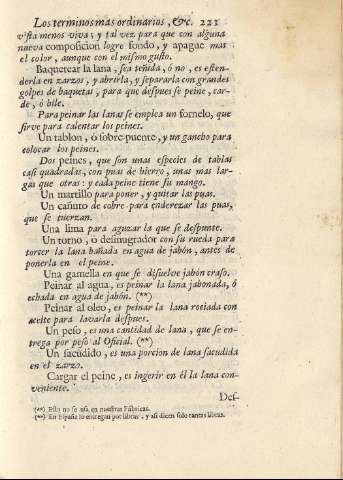 Los terminos mas ordinarios, &c. 221
vista menos viva; y tal vez para que con alguna
nueva composicion logre fondo, y apague mas
el color, aunque con el mismo gusto.
Baquetear la lana, sea teñida, ó no, es esten-
derla en zarzos, y abrirla, y separarla con grandes
golpes de baquetas, para que despues se peine, car-
de, ó hile.
Para peinar las lanas se emplea un fornelo, que
sirve para calentar los peines.
Un tablon, ó sobre-puente, y un gancho para
colocar los peines.
Dos peines, que son unas especies de tablas
casi quadradas, con puas de hierro, unas mas lar-
gas que otras: y cada peine tiene su mango.
Un martillo para poner, y quitar las puas.
Un cañuto de cobre para enderezar las puas,
que se tuerzan.
Una lima para aguzar la que se despunte.
Un torno, ó desmugrador con su rueda para
torcer la lana bañada en agua de jabón, antes de
ponerla en el peine.
Una gamella en que se disuelve jabón craso.
Peinar al agua, es peinar la lana jabonada, ó
echada en agua de jabón. (**)
Peinar al oleo, es peinar la lana rociada con
aceite para lavarla despues.
Un peso, es una cantidad de lana, que se en-
trega por peso al Oficial. (**)
Un sacudido, es una porcion de lana sacudida
en el zarzo.
Cargar el peine, es ingerir en él la lana con-
veniente.
Des-
(**) Esto no se usa en nuestras Fábricas.
(**) En España lo entregan por libras, y asi dicen solo tantas libras.